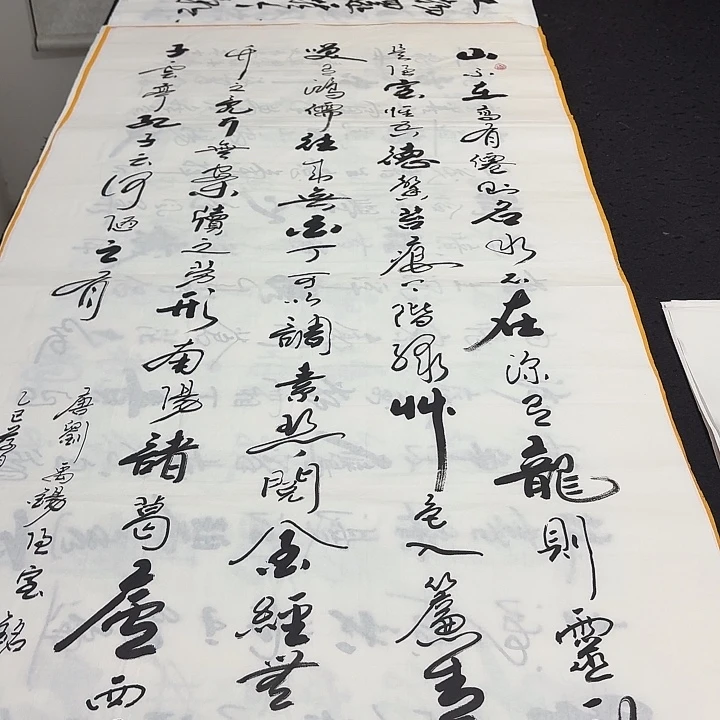 山不在高有僊則名水不在深有龍則靈
是陋室惟吾德馨苔痕上階綠艸色入簾青
笑有鴻儒往来無白丁可以調素琴閱金經無
竹之乱耳無案牘之勞形南陽諸葛廬西
子雲亭孔子云何陋之有
唐劉禹錫陋室銘
乙巳